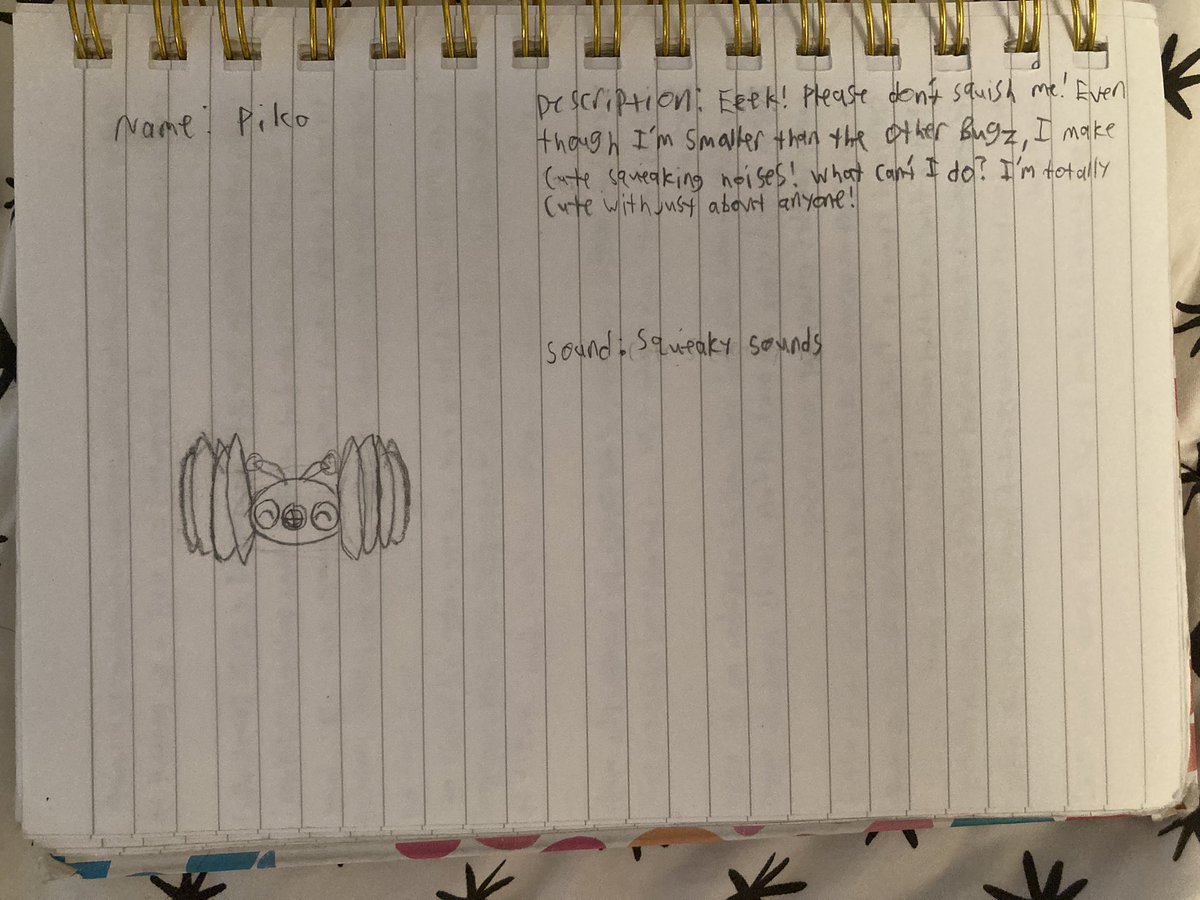 Name: Piko
Description: Eeek! Please don't squish me! Even
though I'm smaller than the other Bugz, I make
cute squeaking noises! What can't I do? I'm totally
cute with just about anyone!
Sound: Squeaky sounds